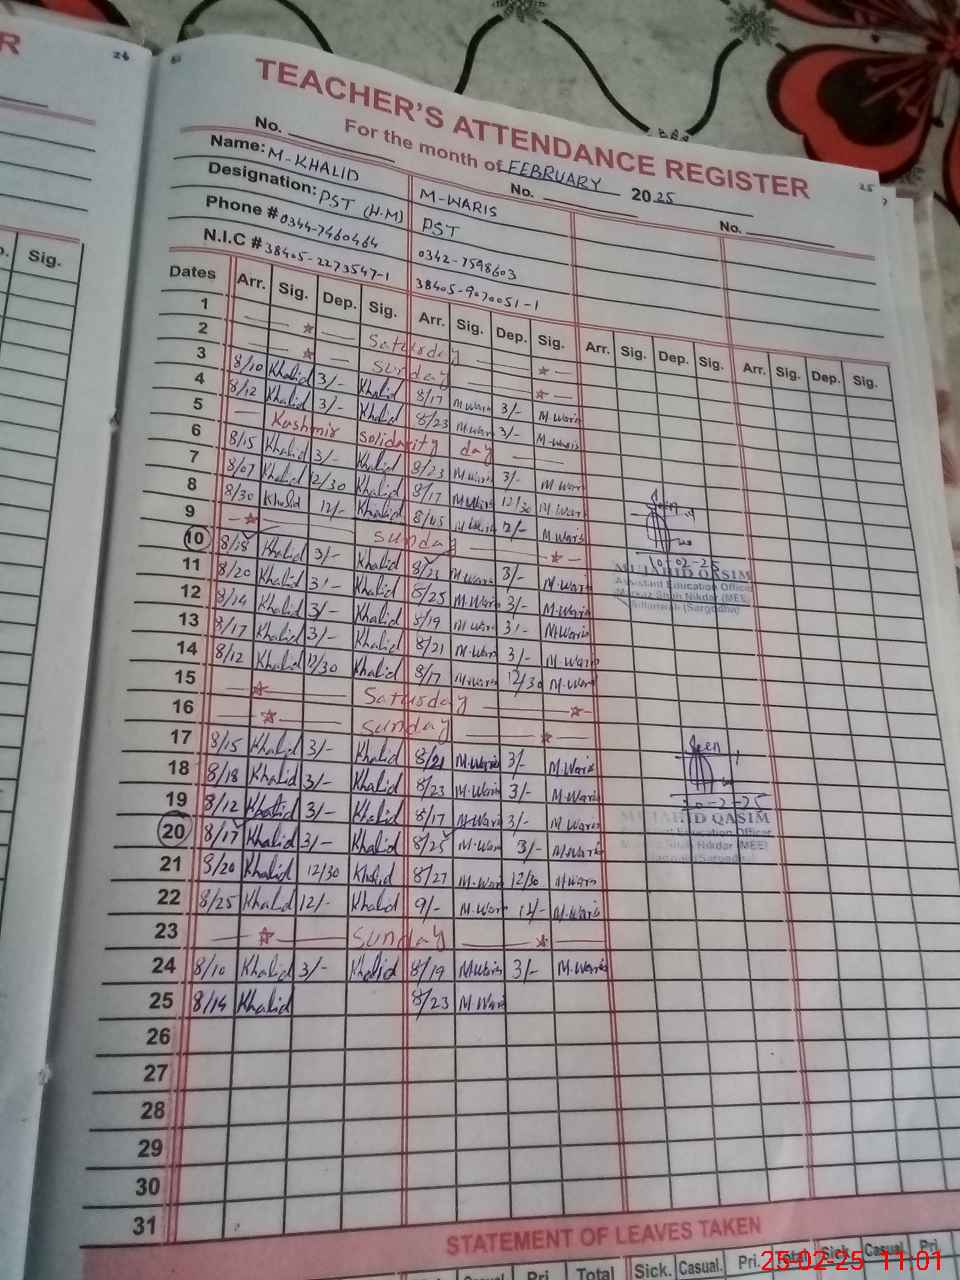 R
26
TEACHER'S ATTENDANCE REGISTER
For the month of FEBRUARY 2025
25
No. No. No.
Name: M-KHALID M-WARIS
Designation: PST (H.M) PST
Phone # 0344-7460464 0342-7598603
N.I.C # 38405-2273547-1 38405-9070051-1
Sig.
Dates Arr. Sig. Dep. Sig. Arr. Sig. Dep. Sig. Arr. Sig. Dep. Sig. Arr. Sig. Dep. Sig.
1 Saturday
2 Sunday
3 8/10 Khalid 3/- Khalid 8/17 M.Waris 3/- M.Waris
4 8/12 Khalid 3/- Khalid 8/23 M.Waris 3/- M.Waris
5 Kashmir Solidarity day
6 8/15 Khalid 3/- Khalid 8/23 M.Waris 3/- M.Waris
7 8/07 Khalid 12/30 Khalid 8/17 M.Waris 12/30 M.Waris
8 8/30 Khalid 12/- Khalid 8/45 M.Waris 12/- M.Waris
9 Sunday
10 8/18 Khalid 3/- Khalid 8/23 M.Waris 3/- M.Waris
11 8/20 Khalid 3/- Khalid 8/25 M.Waris 3/- M.Waris
12 8/14 Khalid 3/- Khalid 8/19 M.Waris 3/- M.Waris
13 8/17 Khalid 3/- Khalid 8/21 M.Waris 3/- M.Waris
14 8/12 Khalid 12/30 Khalid 8/17 M.Waris 12/30 M.Waris
15 Saturday
16 Sunday
17 8/15 Khalid 3/- Khalid 8/21 M.Waris 3/- M.Waris
18 8/18 Khalid 3/- Khalid 8/23 M.Waris 3/- M.Waris
19 8/12 Khalid 3/- Khalid 8/17 M.Waris 3/- M.Waris
20 8/17 Khalid 3/- Khalid 8/25 M.Waris 3/- M.Waris
21 8/20 Khalid 12/30 Khalid 8/27 M.Waris 12/30 M.Waris
22 8/25 Khalid 12/- Khalid 9/- M.Waris 12/- M.Waris
23 Sunday
24 8/10 Khalid 3/- Khalid 8/19 M.Waris 3/- M.Waris
25 8/14 Khalid 8/23 M.Waris
26
27
28
29
30
31
Seen
10-02-25
MUJAHID QASIM
Assistant Education Officer
Markaz Shah Nikdar (MEE)
Sillanwali (Sargodha)
Seen
20-2-25
MUJAHID QASIM
Education Officer
Shah Nikdar (MEE)
(Sargodha)
STATEMENT OF LEAVES TAKEN
Casual Pri Total Sick. Casual. Pri. Total Sick. Casual Pri
25-02-25 11:01